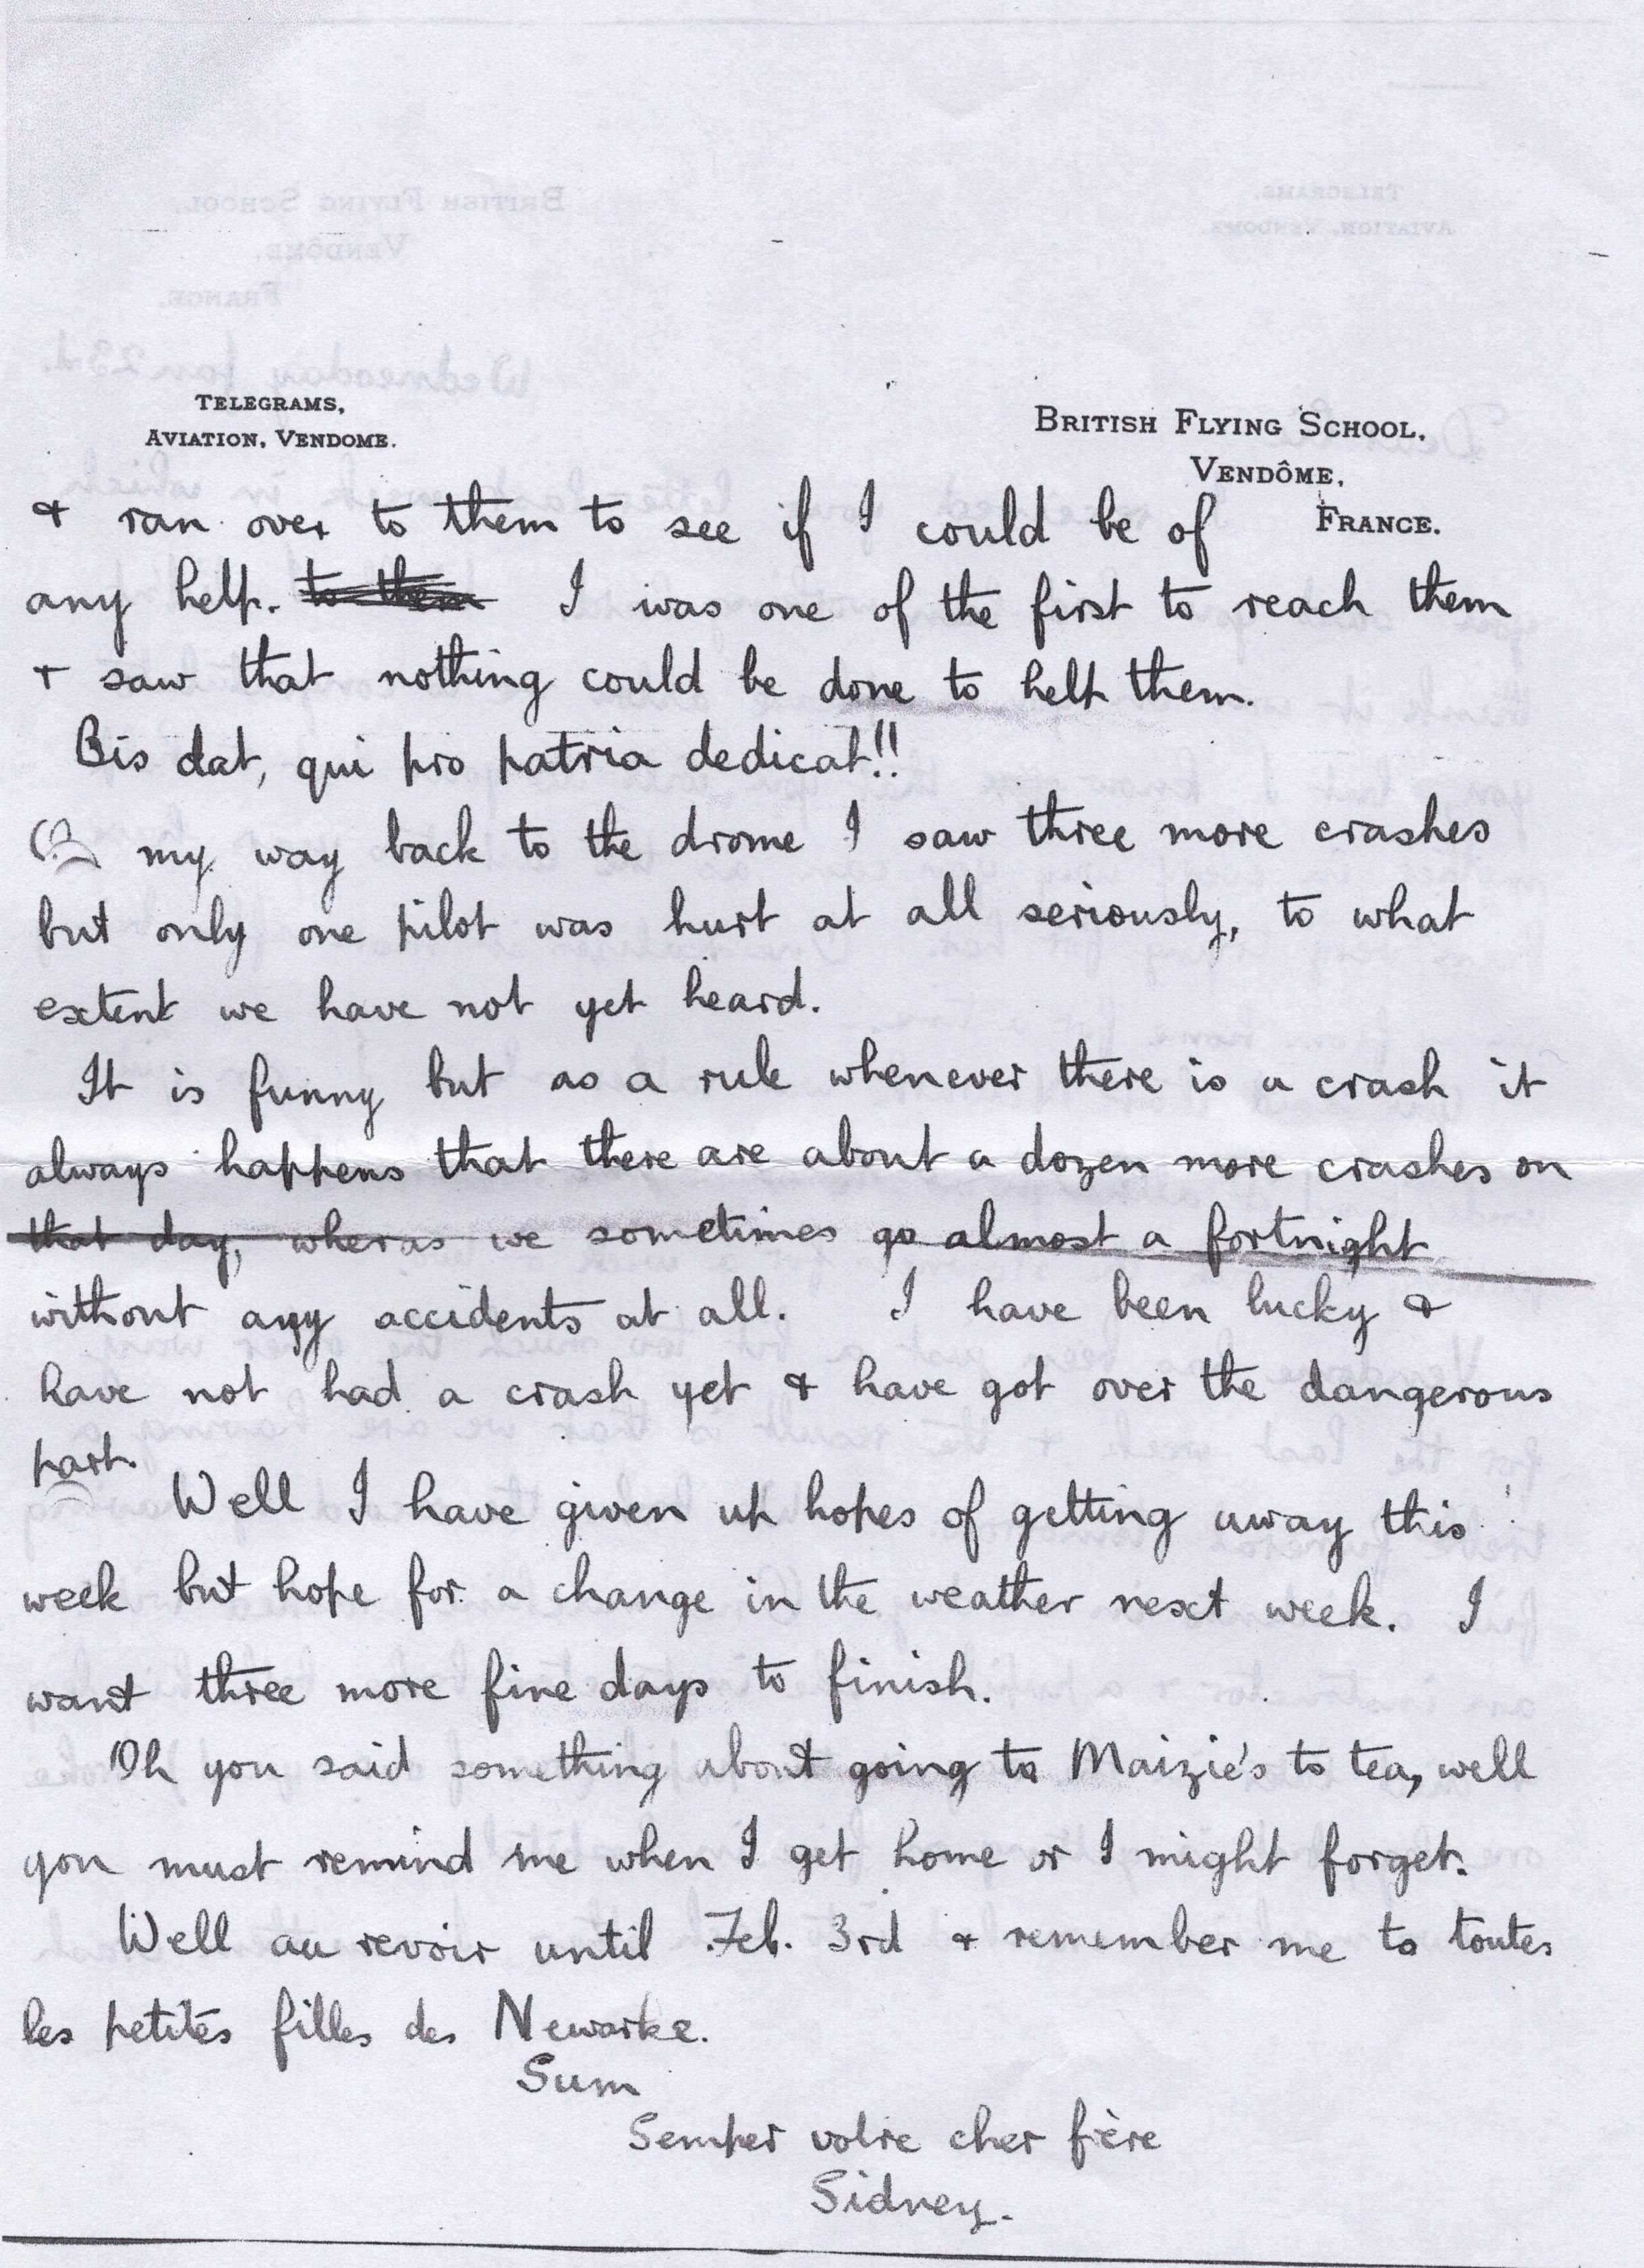 TELEGRAMS,
AVIATION, VENDOME.
BRITISH FLYING SCHOOL,
VENDÔME,
FRANCE.
& ran over to them to see if I could be of
any help. to them I was one of the first to reach them
& saw that nothing could be done to help them.
Bis dat, qui pro patria dedicat!!
On my way back to the drome I saw three more crashes
but only one pilot was hurt at all seriously, to what
extent we have not yet heard.
It is funny but as a rule whenever there is a crash it
always happens that there are about a dozen more crashes on
that day, wheras we sometimes go almost a fortnight
without any accidents at all. I have been lucky &
have not had a crash yet & have got over the dangerous
part.
Well I have given up hopes of getting away this
week but hope for a change in the weather next week. I
want three more fine days to finish.
Oh you said something about going to Maizie's to tea, well
you must remind me when I get home or I might forget.
Well au revoir until Feb. 3rd & remember me to toutes
les petites filles des Newarke.
Sum
Semper votre cher frère
Sidney.